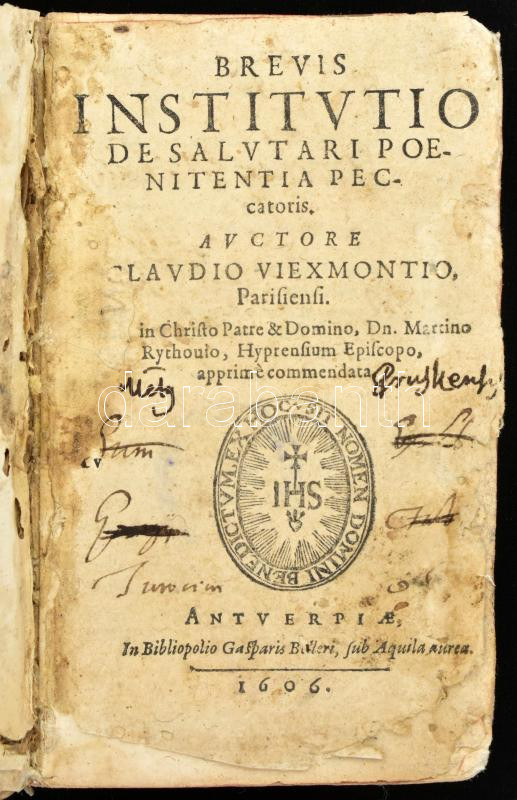 BREVIS
INSTITVTIO
DE SALVTARI POE-
NITENTIA PEC-
catoris.
AVCTORE
CLAVDIO VIEXMONTIO,
Parisiensi.
in Christo Patre & Domino, Dn. Martino
Rythouio, Hyprensium Episcopo,
apprimè commendata
darabanth
SIT NOMEN DOMINI BENEDICTVM. EX HOC
IHS
ANTVERPIÆ,
In Bibliopolio Gasparis Belleri, sub Aquila aurea.
1606.